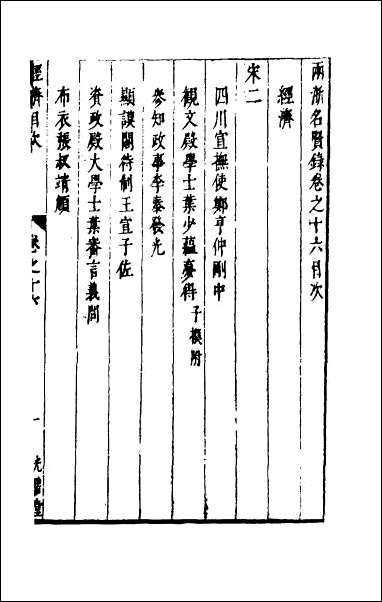 兩浙名賢錄卷之十六目次
經濟
宋二
四川宣撫使鄭亨仲剛中
觀文殿學士葉少蘊夢得子模附
參知政事李泰發光
顯謨閣待制王宣子佐
資政殿大學士葉審言義問
布衣張叔靖顏
經濟目次
卷之十六
一
光碧堂